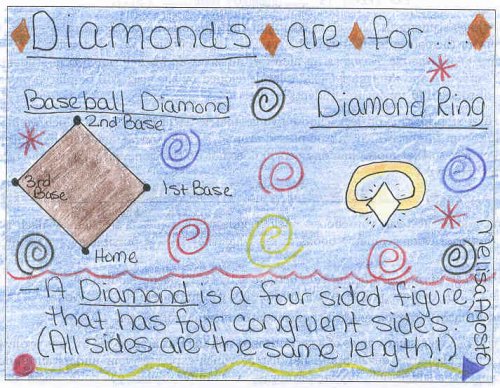 Diamonds are for...
Baseball Diamond
Diamond Ring
2nd Base
3rd
Base
1st Base
Home
- A Diamond is a four sided figure
that has four congruent sides.
(All sides are the same length!)